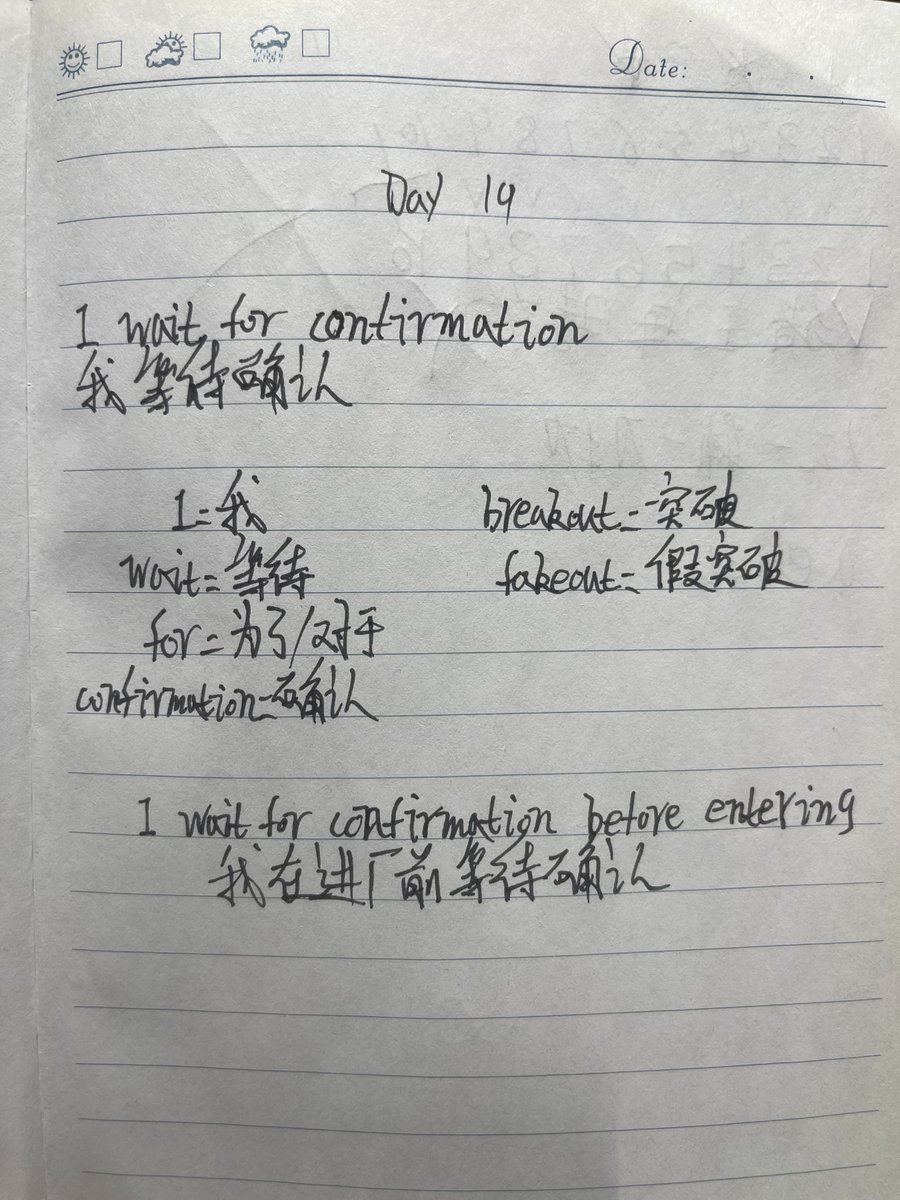 Date:
Day 19
I wait for confirmation
我等待确认
I=我
breakout=突破
wait=等待
fakeout=假突破
for=为了/对于
confirmation=确认
I wait for confirmation before entering
我在进厂前等待确认